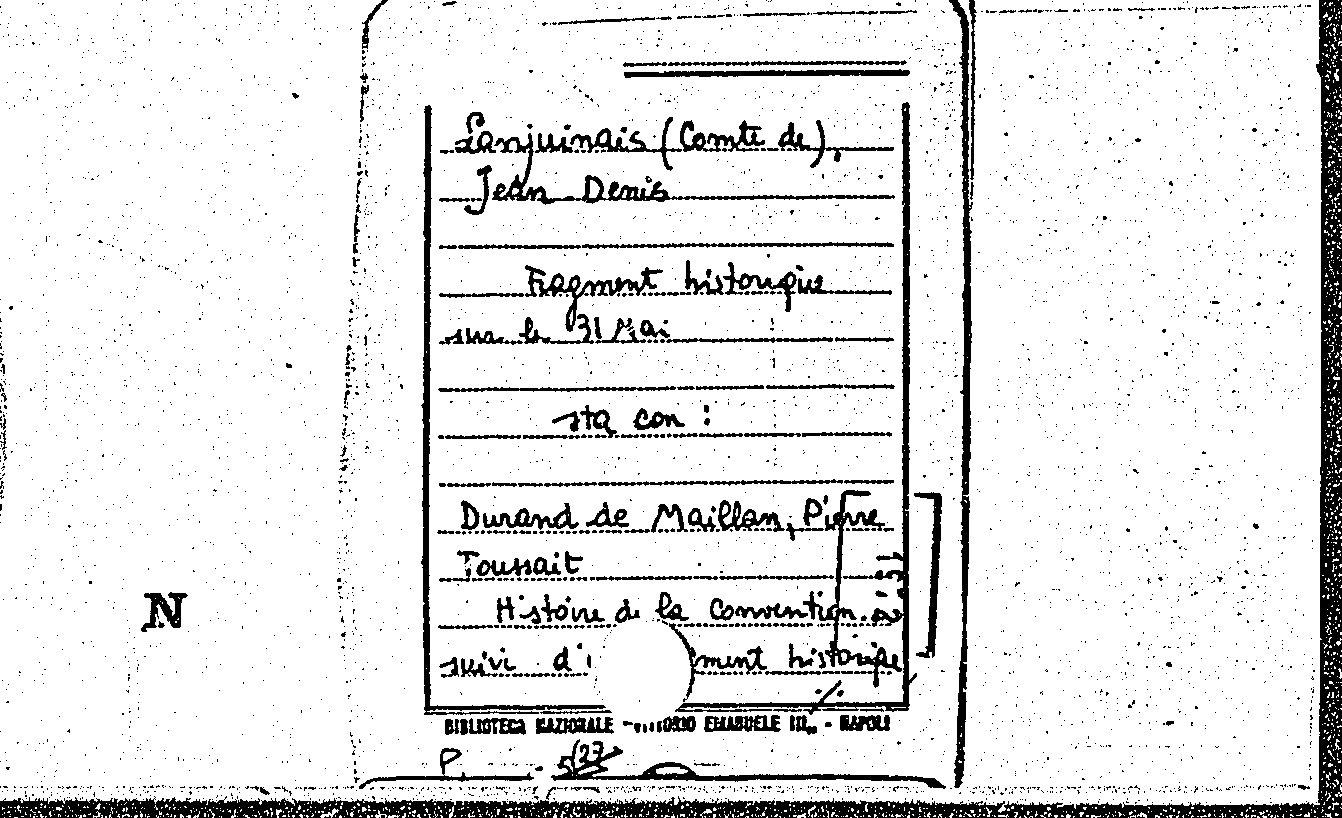 Lanjuinais (Comte de),
Jean Denis
Fragment historique
sur le 31 Mai
sta con :
Durand de Maillan, Pierre
Toussait
Histoire de la Convention
suivi d' ment historique
N
BIBLIOTECA NAZIONALE EMANUELE III - NAPOLI
P.